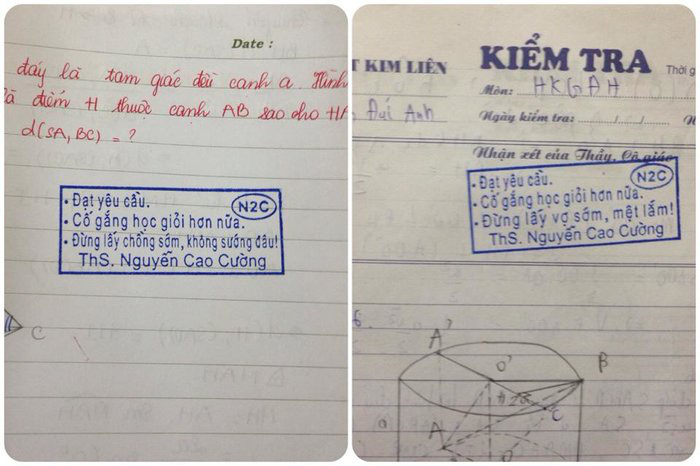 Date :
đáy là tam giác đều cạnh a. Hình
là điểm H thuộc cạnh AB sao cho HA
d(SA, BC) = ?
N2C
• Đạt yêu cầu.
• Cố gắng học giỏi hơn nữa.
• Đừng lấy chồng sớm, không sướng đâu!
ThS. Nguyễn Cao Cường
C
T KIM LIÊN
KIỂM TRA
Thời g
Môn: HKGAH
Đức Anh
Ngày kiểm tra: / /
Nhận xét của Thầy, Cô giáo
N2C
• Đạt yêu cầu.
• Cố gắng học giỏi hơn nữa.
• Đừng lấy vợ sớm, mệt lắm!
ThS. Nguyễn Cao Cường
A'
O'
B
H
C
A